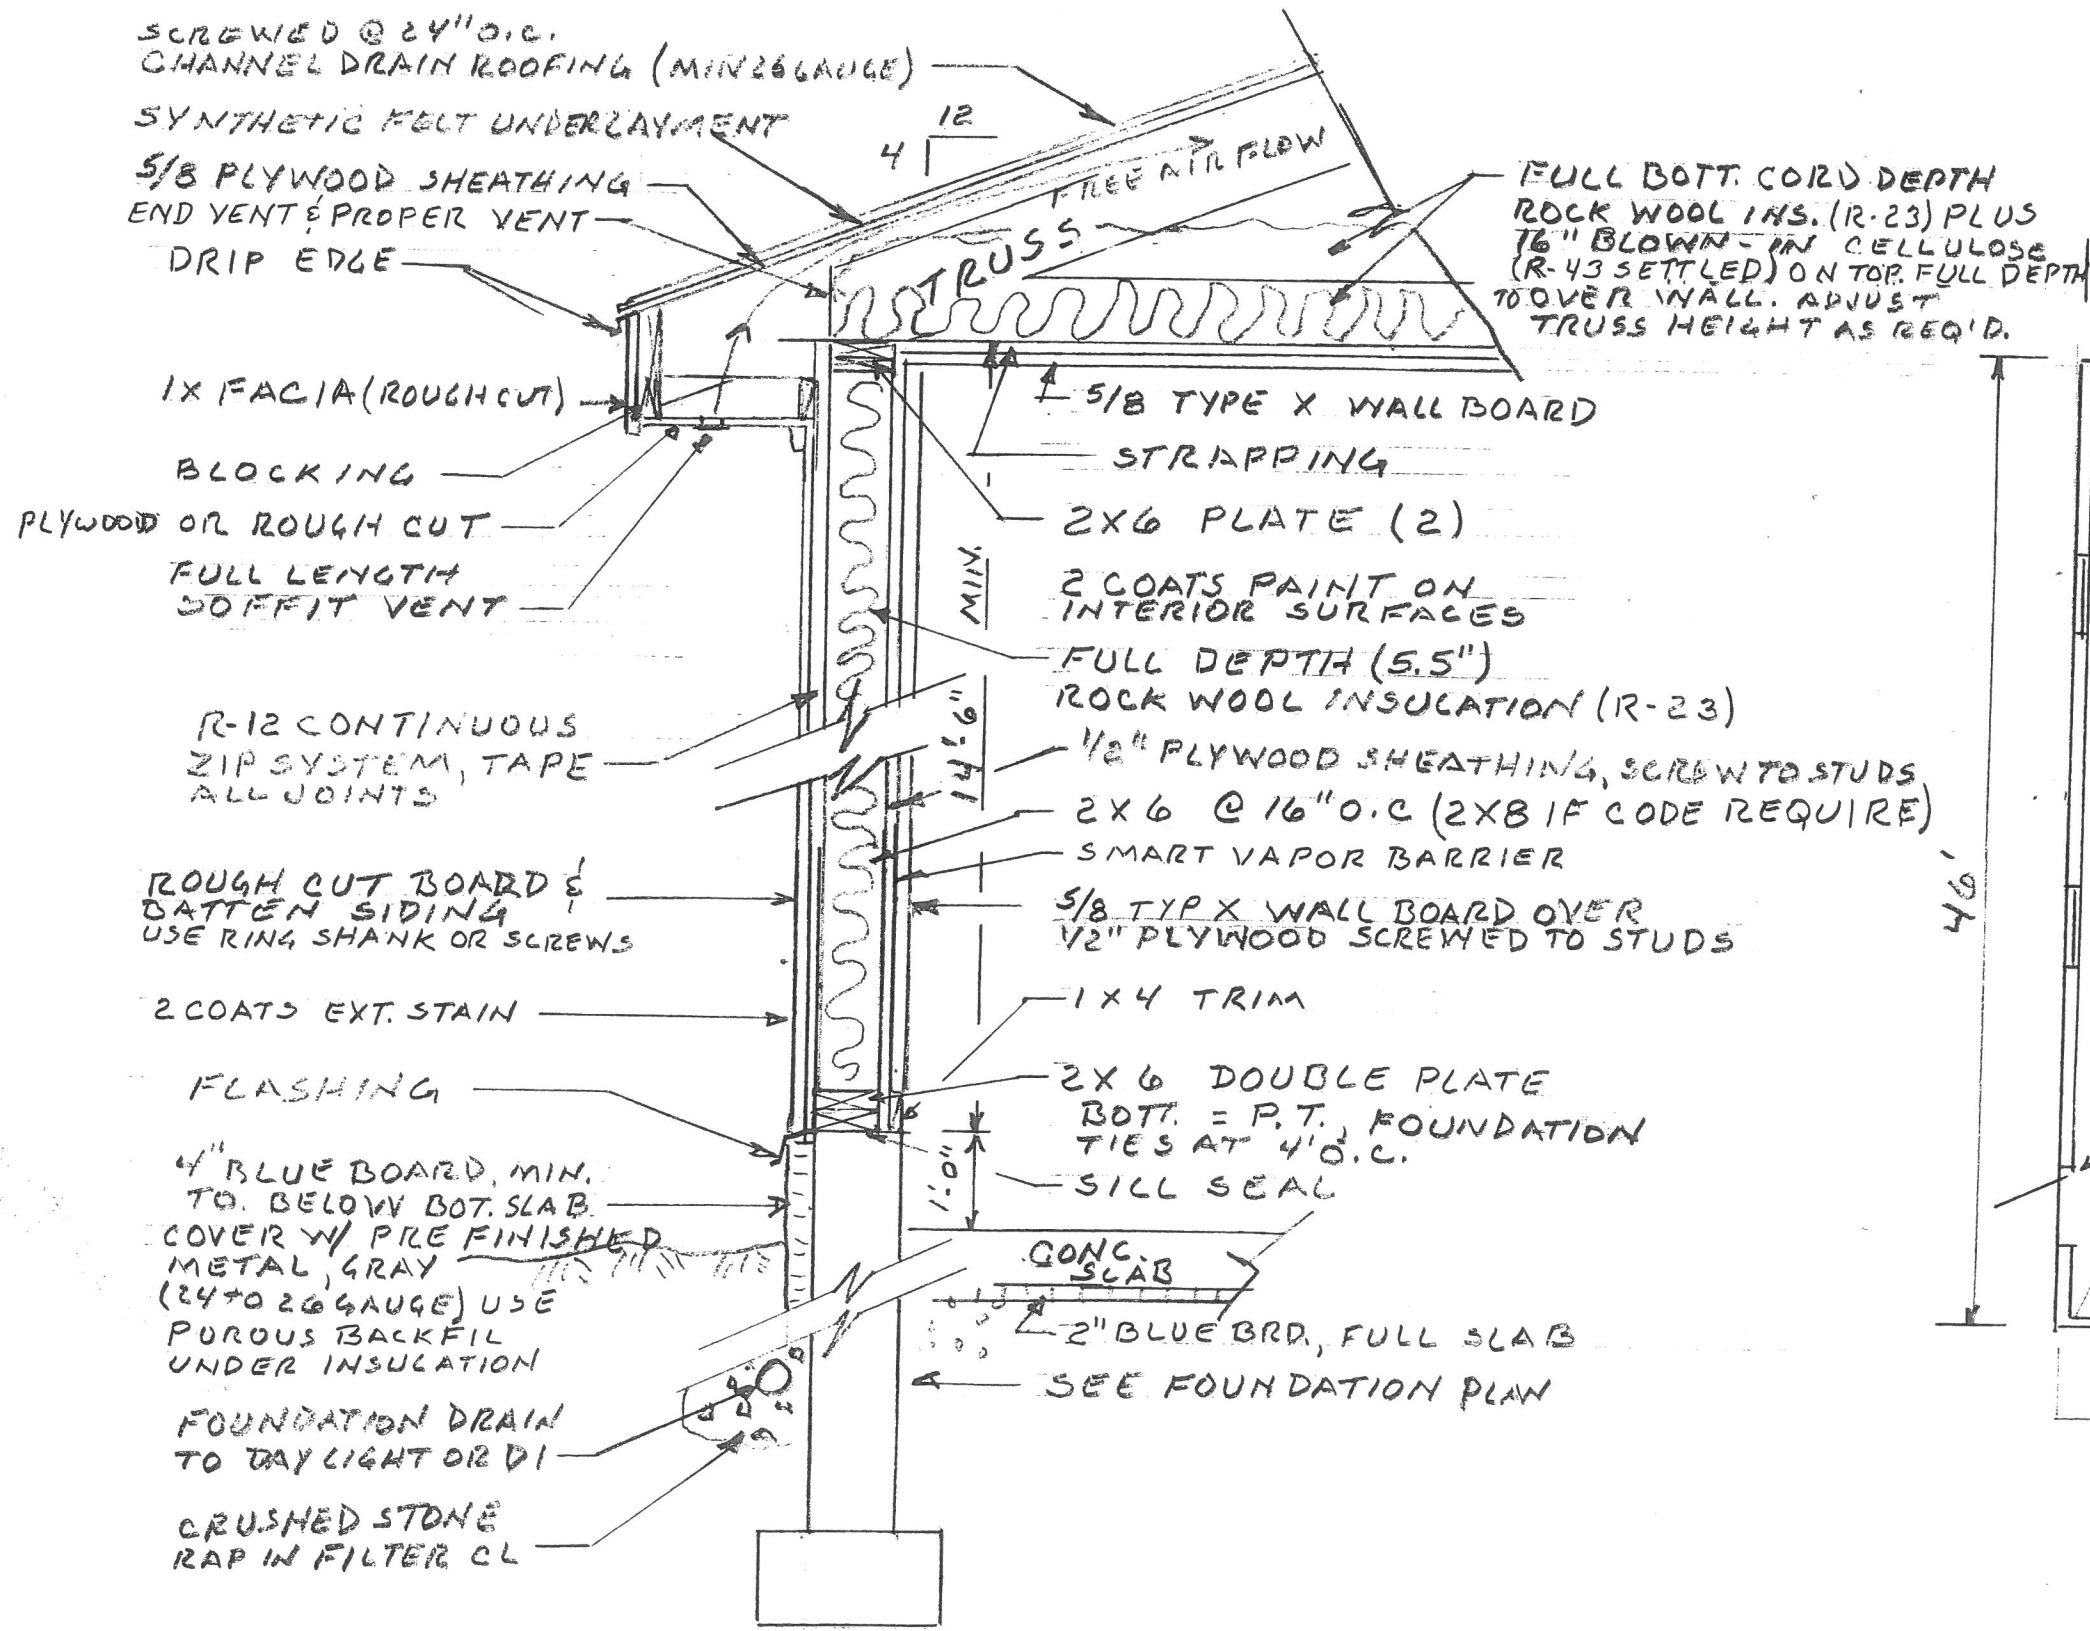 SCREWED @ 24" O.C.
CHANNEL DRAIN ROOFING (MIN 26 GAUGE)
SYNTHETIC FELT UNDERLAYMENT
5/8 PLYWOOD SHEATHING
END VENT & PROPER VENT
DRIP EDGE
1X FACIA (ROUGH CUT)
BLOCKING
PLYWOOD OR ROUGH CUT
FULL LENGTH
SOFFIT VENT
R-12 CONTINUOUS
ZIP SYSTEM, TAPE
ALL JOINTS
ROUGH CUT BOARD &
BATTEN SIDING
USE RING SHANK OR SCREWS
2 COATS EXT. STAIN
FLASHING
4" BLUE BOARD, MIN.
TO. BELOW BOT. SLAB
COVER W/ PRE FINISHED
METAL, GRAY
(24 TO 26 GAUGE) USE
POROUS BACKFIL
UNDER INSULATION
FOUNDATION DRAIN
TO DAYLIGHT OR DI
CRUSHED STONE
RAP IN FILTER CL
12
4
FREE AIR FLOW
TRUSS
FULL BOTT. CORD DEPTH
ROCK WOOL INS. (R-23) PLUS
16" BLOWN-IN CELLULOSE
(R-43 SETTLED) ON TOP. FULL DEPTH
TO OVER WALL. ADJUST
TRUSS HEIGHT AS REQ'D.
5/8 TYPE X WALL BOARD
STRAPPING
2X6 PLATE (2)
2 COATS PAINT ON
INTERIOR SURFACES
FULL DEPTH (5.5")
ROCK WOOL INSULATION (R-23)
1/2" PLYWOOD SHEATHING, SCREW TO STUDS
2X6 @ 16" O.C (2X8 IF CODE REQUIRE)
SMART VAPOR BARRIER
5/8 TYP X WALL BOARD OVER
1/2" PLYWOOD SCREWED TO STUDS
1X4 TRIM
2X6 DOUBLE PLATE
BOTT. = P.T., FOUNDATION
TIES AT 4' O.C.
SILL SEAL
MIN.
1'-0"
CONC.
SLAB
2" BLUE BRD., FULL SLAB
SEE FOUNDATION PLAN